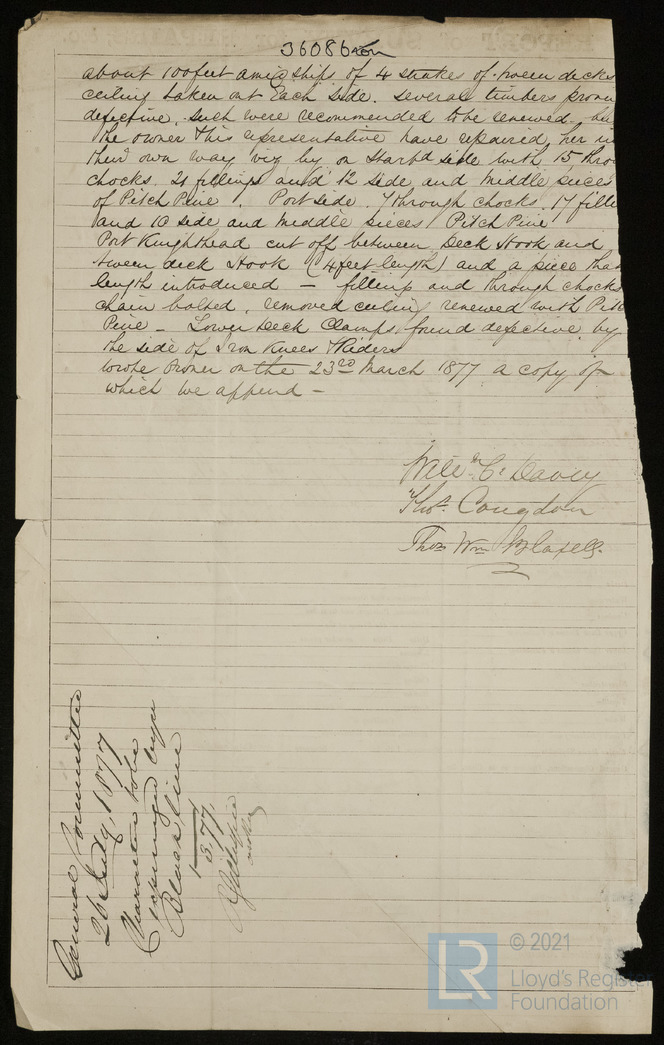 36086 Lon
about 100 feet amidships of 4 strakes of tween decks
ceiling taken out Each side. Several timbers
defective, such were recommended to be renewed
the owner & his representative have repaired her in
their own way viz by on Starbd side with 15
chocks. 21 fillings and 12 side and middle pieces
of Pitch Pine. Port side. 7 through chocks. 17
and 10 side and middle pieces Pitch Pine
Port Knighthead cut off between Deck Hook and
tween deck Hook (4 feet length) and a piece that
length introduced — fillings and through chocks
chain bolted, removed ceiling renewed with
Pine — Lower Deck Clamps found defective by
the side of Iron Knees & Riders
wrote Owner on the 23rd March 1877 a copy of
which we append —
Willm C. Davey
Thos. Congdon
Thos Wm Blaxell.
General Committee
26 July, 1877
Character to be
expunged by
Black line
LR
© 2021
Lloyd's Register
Foundation